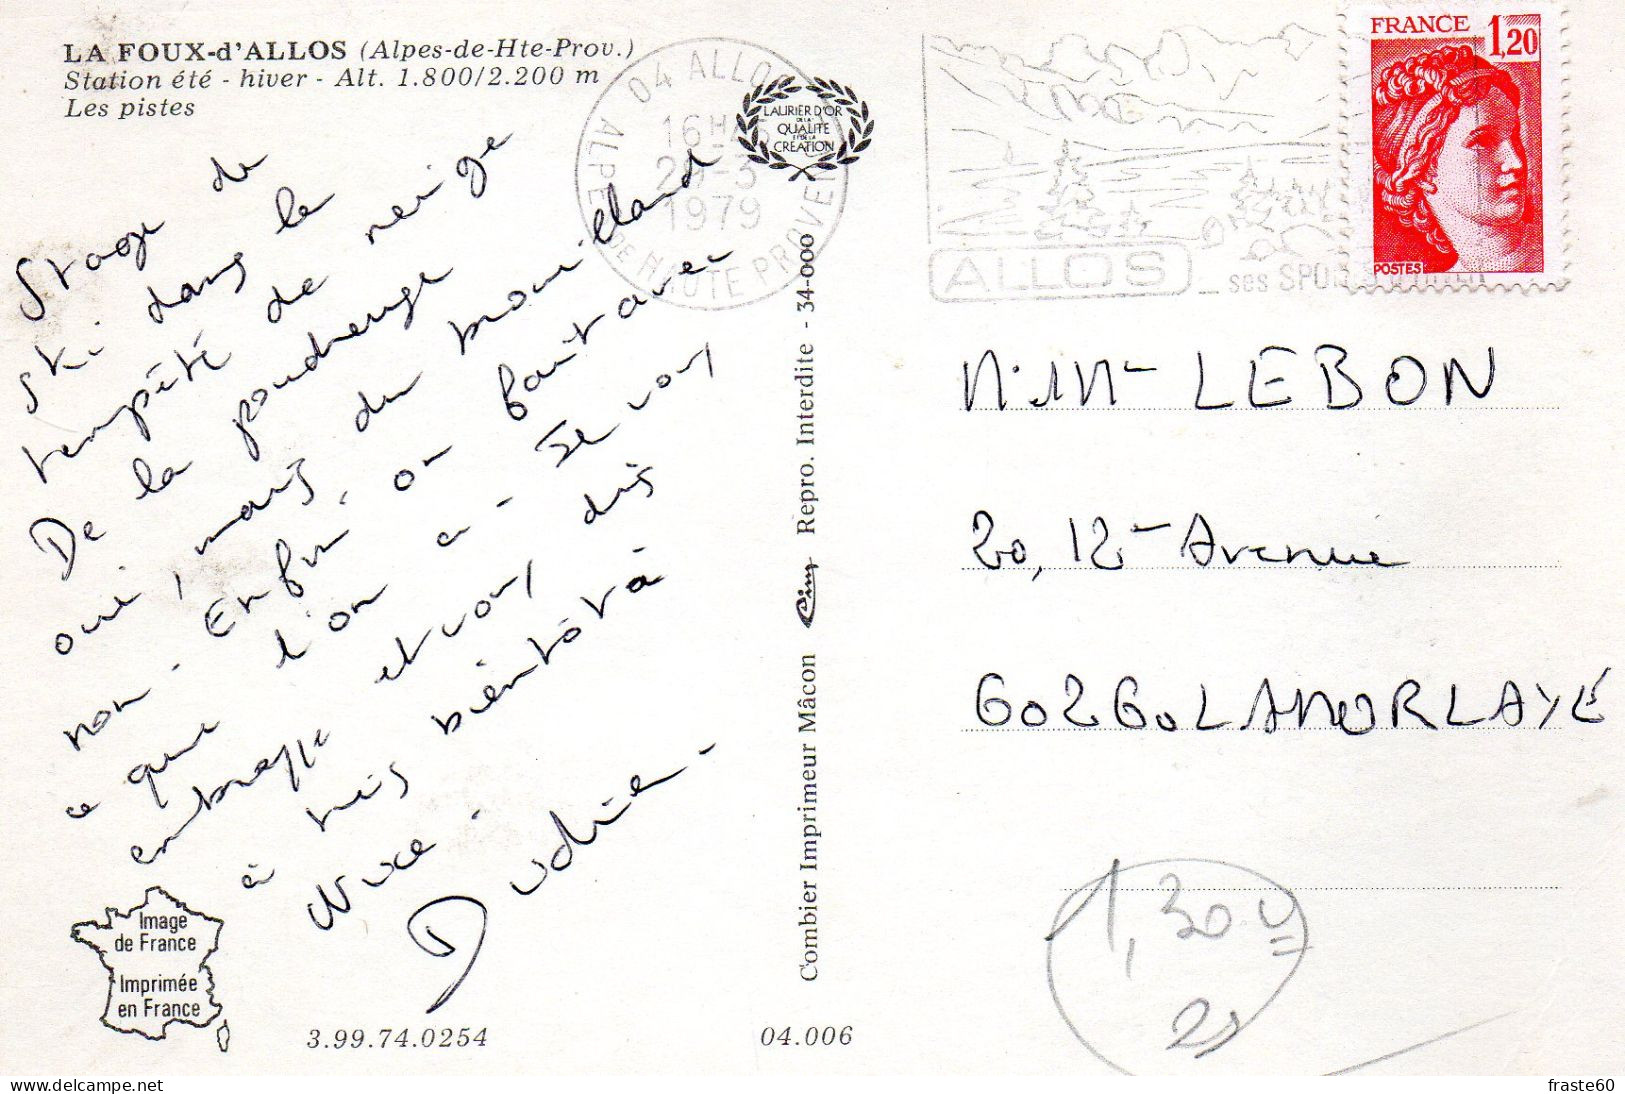 LA FOUX-d'ALLOS (Alpes-de-Hte-Prov.)
Station été - hiver - Alt. 1.800/2.200 m
Les pistes
Stage de
ski dans la
tempête de neige
De la poudreuse
oui, mais du brouillard
non. Enfin, on fait avec
ce que l'on a - Je vous
embrasse et vous dis
à très bientôt à
Nice.
Image
de France
Imprimée
en France
3.99.74.0254
04.006
Combier Imprimeur Mâcon Cim Repro. Interdite - 34-000
LAURIER D'OR
DE LA
QUALITÉ
ET DE LA
CRÉATION
04 ALLOS
16H
1979
ALPES DE HAUTE PROVENCE
ALLOS
ses SPORTS
FRANCE 1,20
POSTES
M. Me LEBON
20, 12e Avenue
60260 LAMORLAYE
1,30
fraste60